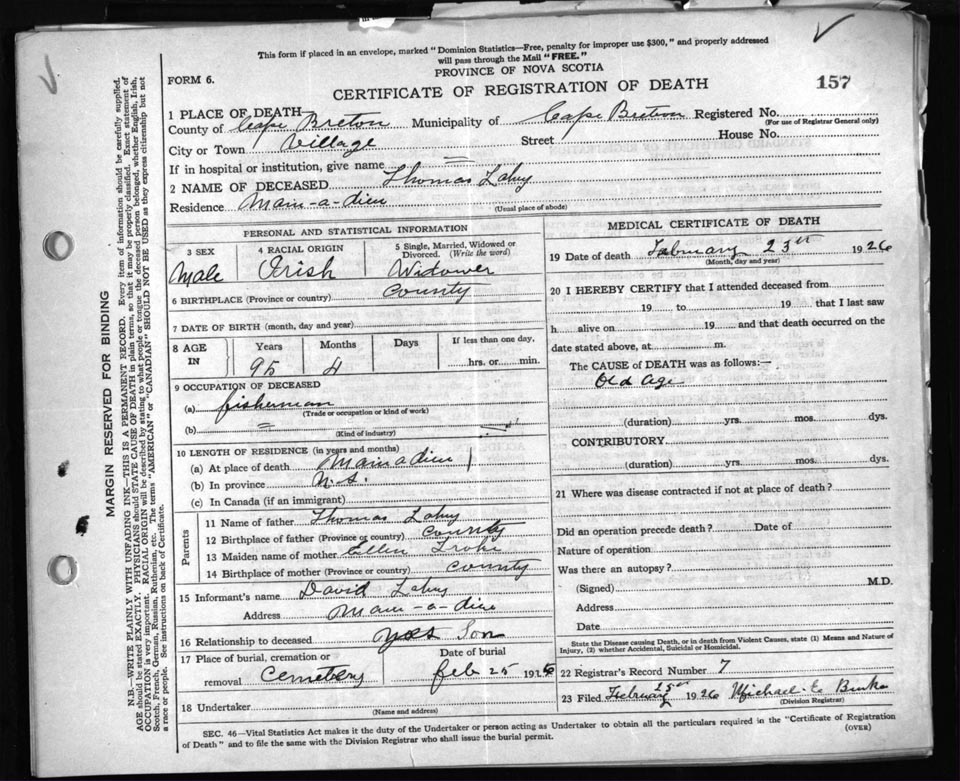 This form if placed in an envelope, marked "Dominion Statistics—Free, penalty for improper use $300," and properly addressed
will pass through the Mail "FREE."
PROVINCE OF NOVA SCOTIA
FORM 6.
CERTIFICATE OF REGISTRATION OF DEATH
157
1 PLACE OF DEATH
County of Cape Breton Municipality of Cape Breton Registered No.
(For use of Registrar General only)
City or Town Village Street House No.
If in hospital or institution, give name
2 NAME OF DECEASED Thomas Lahey
Residence Main-a-dieu
(Usual place of abode)
PERSONAL AND STATISTICAL INFORMATION
3 SEX 4 RACIAL ORIGIN 5 Single, Married, Widowed or
Divorced. (Write the word)
Male Irish Widower
6 BIRTHPLACE (Province or country) County
7 DATE OF BIRTH (month, day and year)
8 AGE IN Years Months Days If less than one day,
95 4 hrs. or min.
9 OCCUPATION OF DECEASED
(a) fisherman
(Trade or occupation or kind of work)
(b) =
(Kind of industry)
10 LENGTH OF RESIDENCE (in years and months)
(a) At place of death Main a dieu
(b) In province N.S.
(c) In Canada (if an immigrant)
Parents
11 Name of father Thomas Lahey
12 Birthplace of father (Province or country) County
13 Maiden name of mother Ellen
14 Birthplace of mother (Province or country) County
15 Informant's name David Lahey
Address Main-a-dieu
16 Relationship to deceased Son
17 Place of burial, cremation or
removal Cemetery
Date of burial
feb 25 1926
18 Undertaker
(Name and address)
MEDICAL CERTIFICATE OF DEATH
19 Date of death February 23rd 1926
(Month, day and year)
20 I HEREBY CERTIFY that I attended deceased from
19 to 19 that I last saw
h alive on 19 and that death occurred on the
date stated above, at m.
The CAUSE of DEATH was as follows:—
Old age
(duration) yrs. mos. dys.
CONTRIBUTORY
(duration) yrs. mos. dys.
21 Where was disease contracted if not at place of death?
Did an operation precede death? Date of
Nature of operation
Was there an autopsy?
(Signed) M.D.
Address
Date
State the Disease causing Death, or in death from Violent Causes, state (1) Means and Nature of
Injury, (2) whether Accidental, Suicidal or Homicidal.
22 Registrar's Record Number 7
23 Filed February 25 1926 Michael E Burke
(Division Registrar)
SEC. 46—Vital Statistics Act makes it the duty of the Undertaker or person acting as Undertaker to obtain all the particulars required in the "Certificate of Registration
of Death" and to file the same with the Division Registrar who shall issue the burial permit.
(OVER)
MARGIN RESERVED FOR BINDING
N.B.—WRITE PLAINLY WITH UNFADING INK—THIS IS A PERMANENT RECORD. Every item of information should be carefully supplied.
AGE should be stated EXACTLY. PHYSICIANS should STATE CAUSE OF DEATH in plain terms, so that it may be properly classified. Exact statement of
OCCUPATION is very important. RACIAL ORIGIN will be described by stating to what people or tongue the deceased person belonged, whether English, Irish,
Scotch, French, German, Russian, Ruthenian, etc. The terms "AMERICAN" or "CANADIAN" SHOULD NOT BE USED as they express citizenship but not
a race or people. See instructions on back of Certificate.